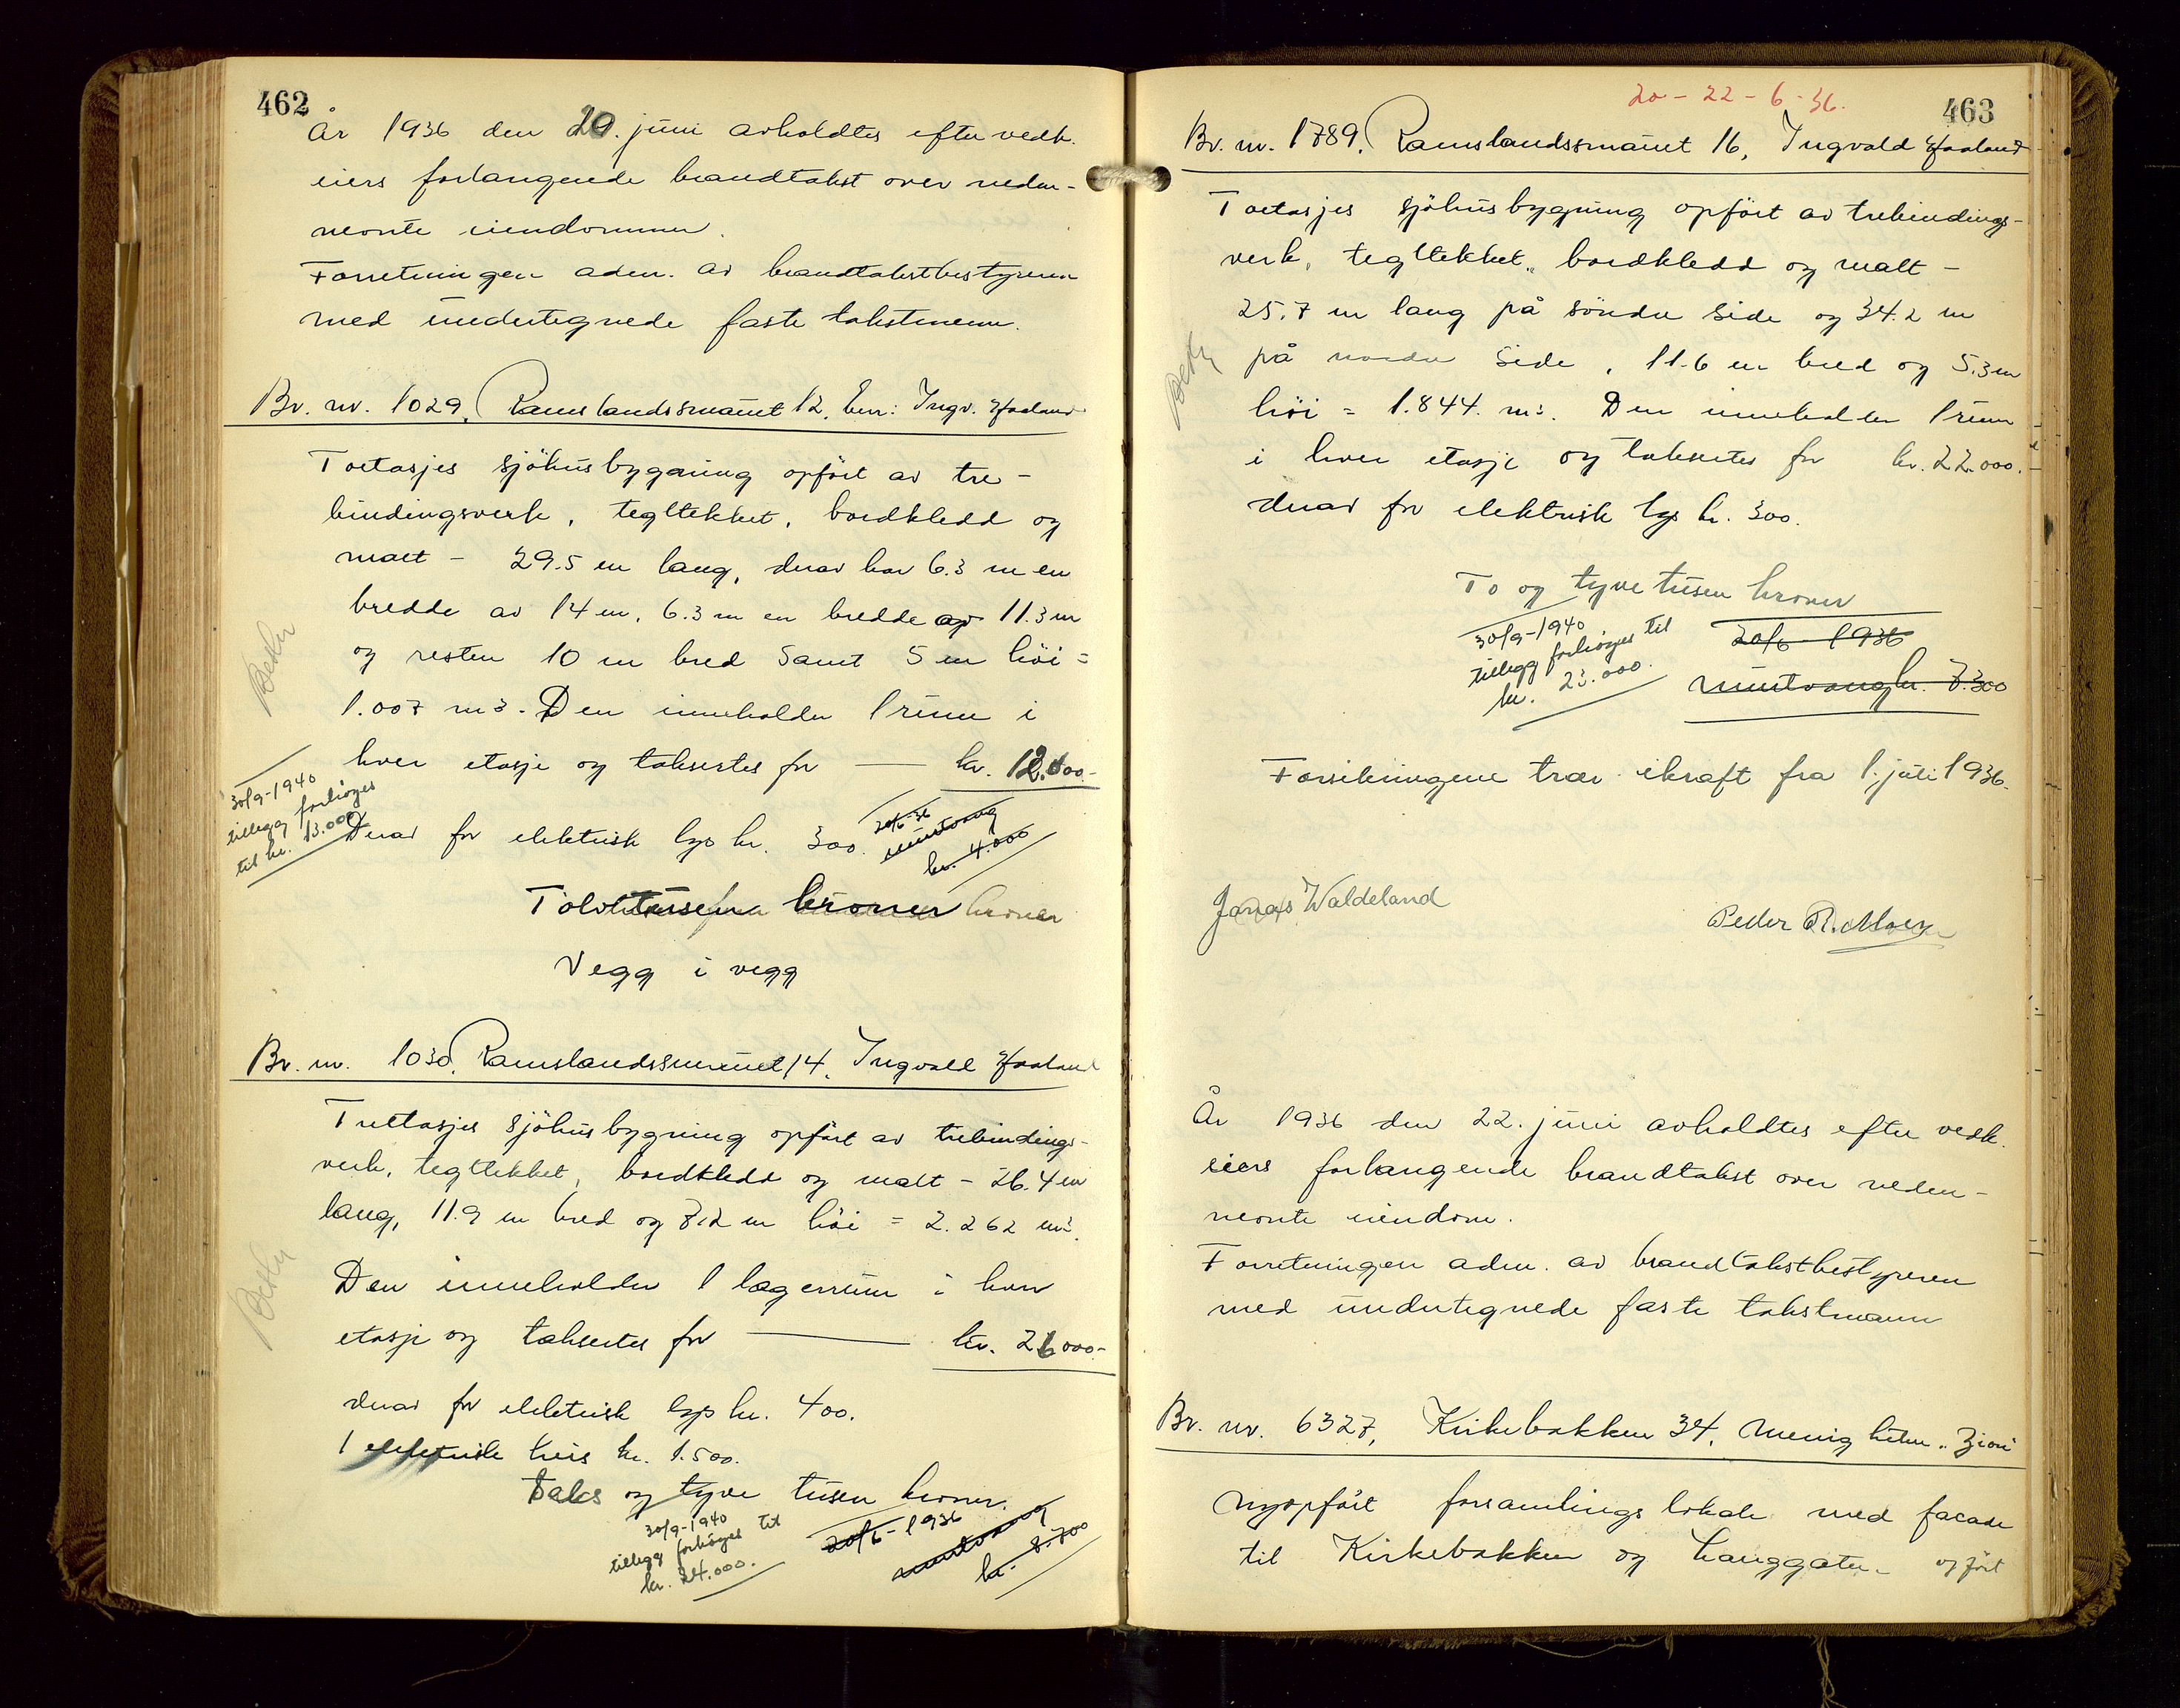 462
År 1936 den 20. juni avholdtes efter vedk.
eiers forlangende brandtakst over neden-
nevnte eiendommer.
Forretningen adm. av brandtakstbestyreren
med undertegnede faste takstmenn.
Br. nr. 1029, Ramslandssmauet 12, Eier: Ingv. Haaland
Toetasjes sjöhusbygning opfört av tre-
bindingsverk, tegltekket, bordkledd og
malt - 29.5 m lang, derav har 6.3 m en
bredde av 14 m, 6.3 m en bredde av 11.3 m
og resten 10 m bred samt 5 m höi =
1.007 m3. Den inneholder 1 rum i
Beslr
hver etasje og taksertes for — kr. 12.000.-
30/9-1940
tillegg forhöyes
til kr. 13.000
Derav for elektrisk lys kr. 300.
20/6-36
kr. 4.000
Tolvtusen kroner kroner
Vegg i vegg
Br. nr. 1030, Ramslandssmauet 14, Ingvald Haaland
Treetasjes sjöhusbygning opfört av trebindings-
verk, tegltekket, bordkledd og malt - 26.4 m
lang, 11.9 m bred og 7.2 m höi = 2.262 m3.
Den inneholder 1 lagerrum i hver
Beslr
etasje og taksertes for — kr. 26000.-
derav for elektrisk lys kr. 400.
1 elektrisk heis kr. 1.500.
Seks og tyve tusen kroner.
30/9-1940
tillegg forhöyes til
kr. 24.000.
20/6-1936
kr. 8.700
20-22-6-36.
463
Br. nr. 1789, Ramslandssmauet 16, Ingvald Haaland
Toetasjes sjöhusbygning opfört av trebindings-
verk, tegltekket, bordkledd og malt -
25.7 m lang på söndre side og 34.2 m
på nordre side, 11.6 m bred og 5.3 m
Beslr
höi = 1.844. m3. Den inneholder 1 rum
i hver etasje og taksertes for kr. 22.000.-
derav for elektrisk lys kr. 300.
To og tyve tusen kroner
30/9-1940
tillegg forhöyes til
kr. 23.000.
20/6 1936
kr. 7.300
Forsikringene trær ikraft fra 1. juli 1936.
Jonas Waldeland
Peder R. Moen
År 1936 den 22. juni avholdtes efter vedk.
eiers forlangende brandtakst over neden-
nevnte eiendom.
Forretningen adm. av brandtakstbestyreren
med undertegnede faste takstmenn
Br. nr. 6327, Kirkebakken 34, Menigheten „Zion"
Nyopfört forsamlingslokale med facade
til Kirkebakken og Langgaten opfört